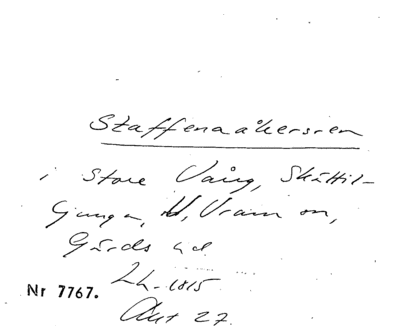 Staffenaåkersren
i Store Vång, Skättil-
ljunga, V. Vram sn,
Gärds hd
Lh. 1815
Akt 27
Nr 7767.